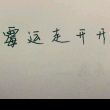 霉运走开开